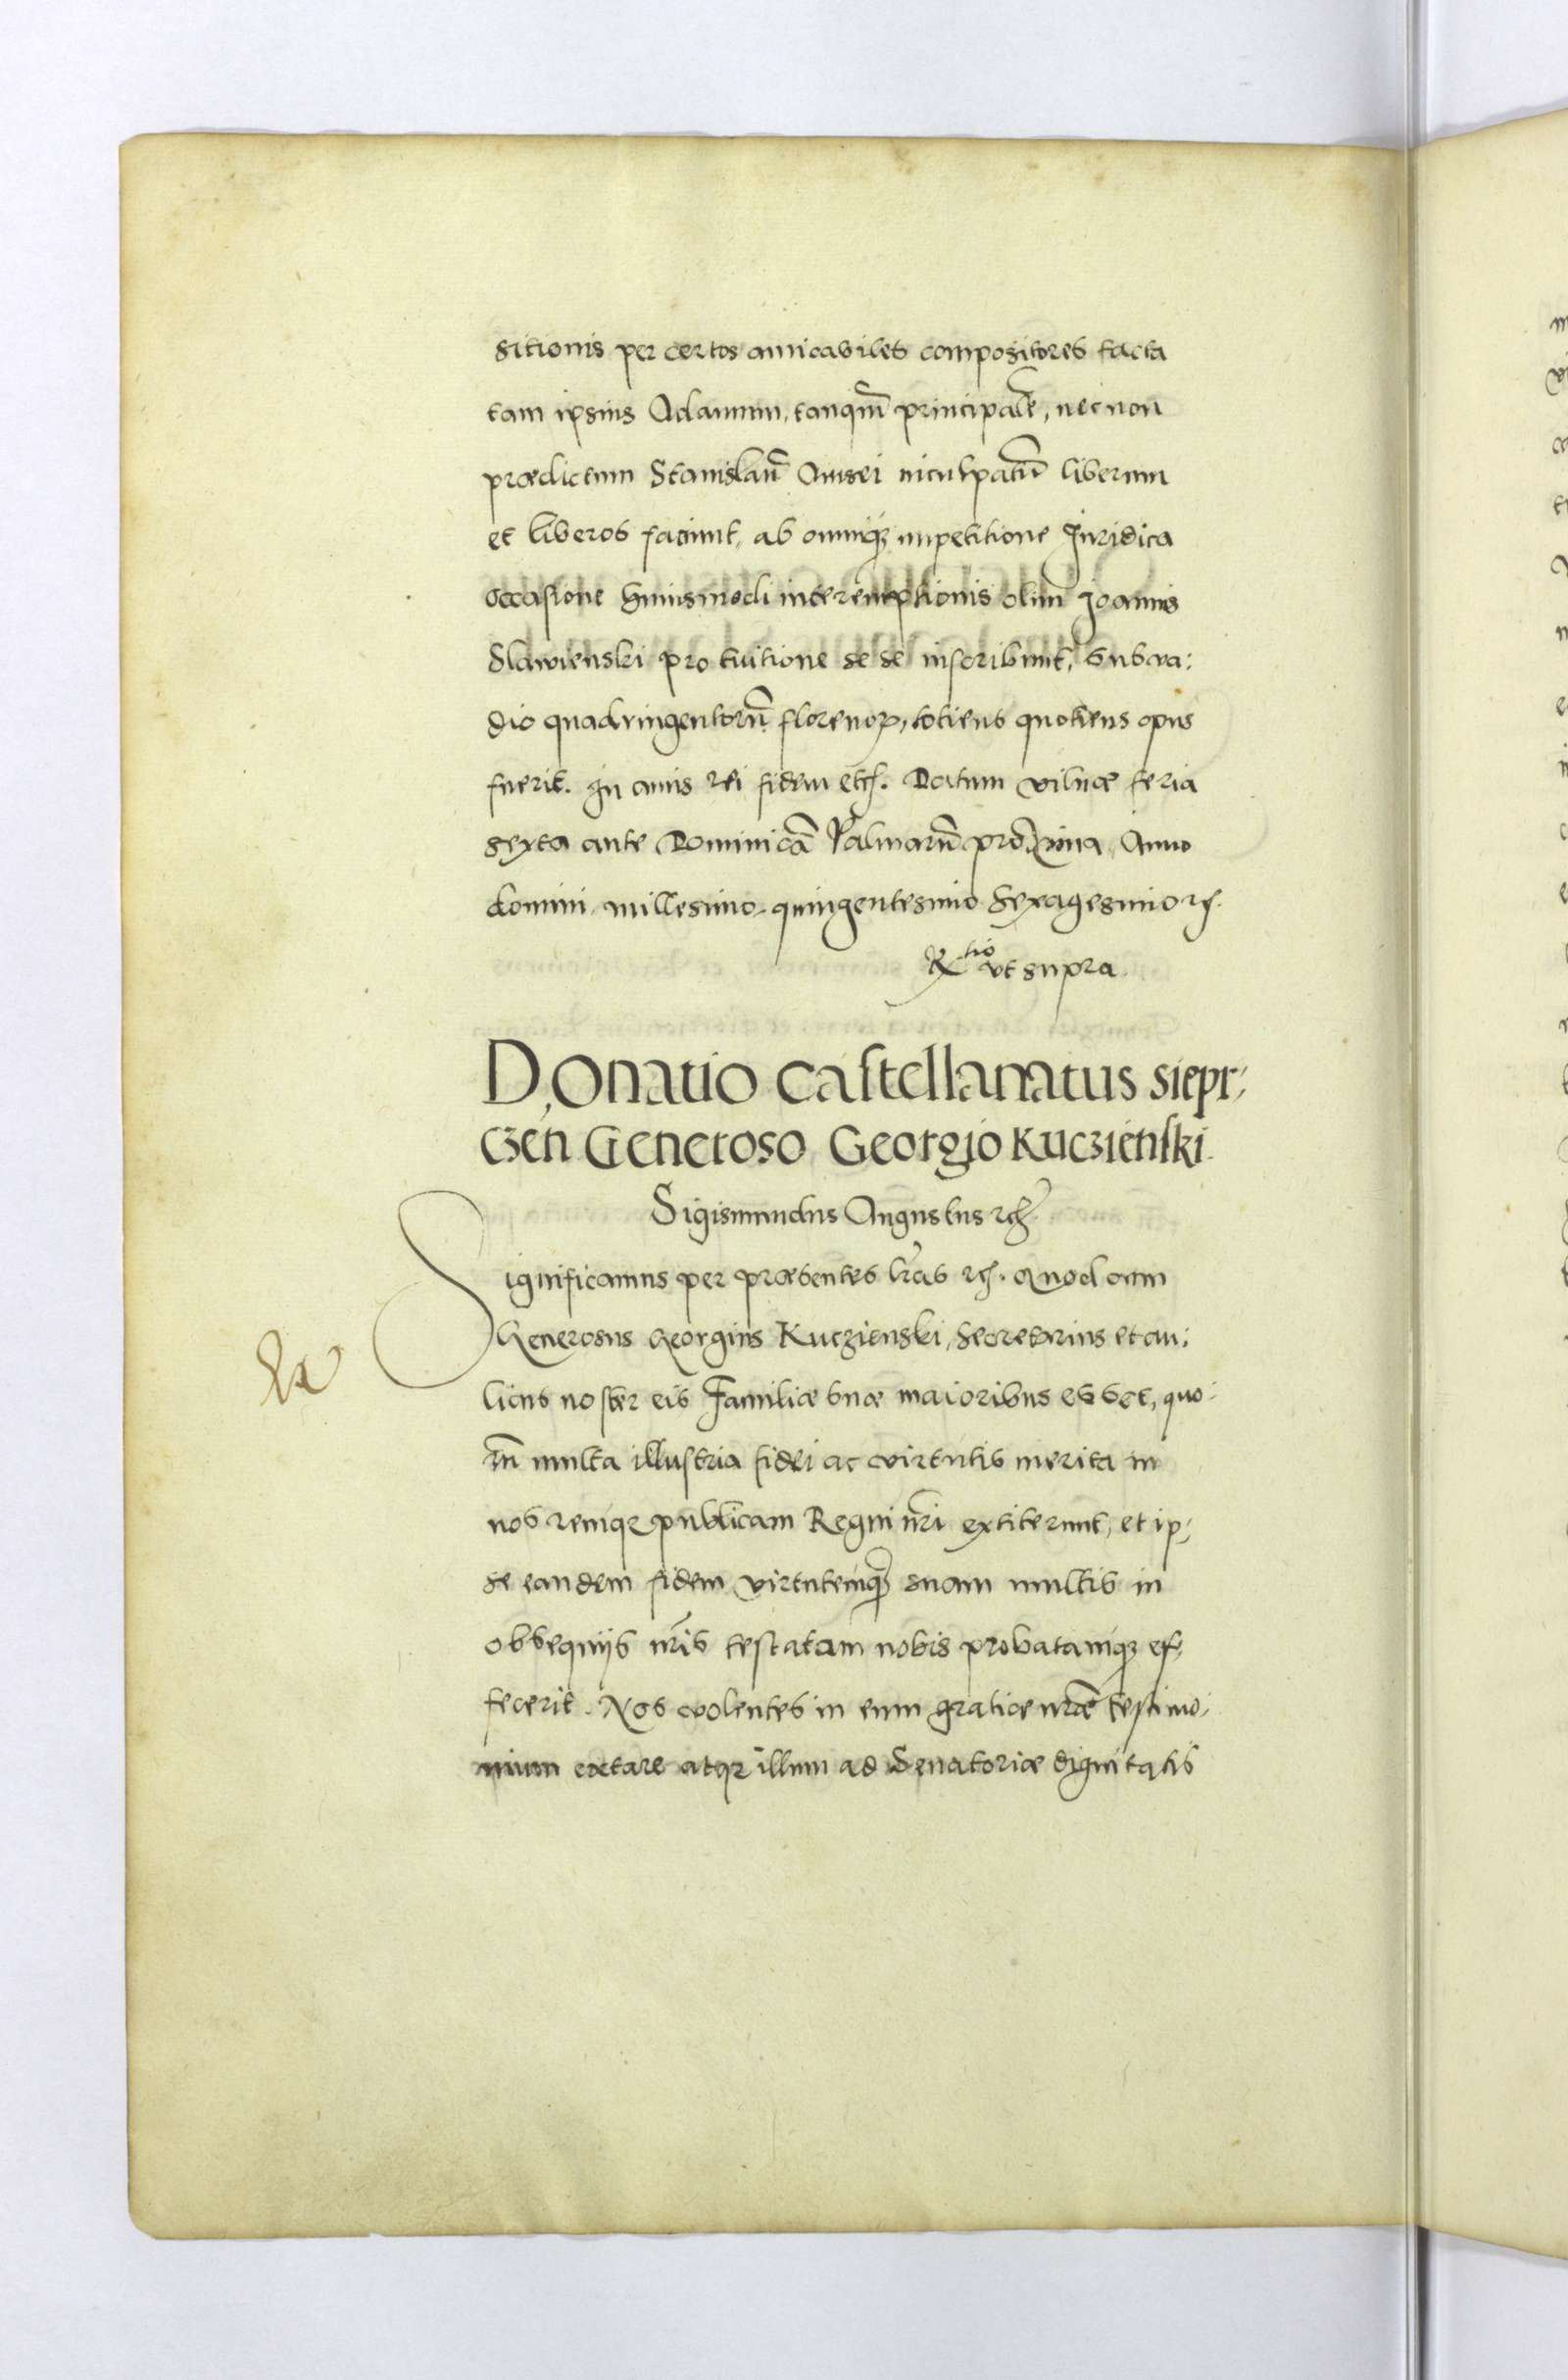 sitionis per certos amicabiles compositores facta
tam ipsius Adamum, tanqm̄ principalē, nec non
prædictum Stanislaū Amsei inculpatū liberum
et liberos faciunt, ab omniq₃ impetitione Juridica
occasione huiusmodi interemptionis olim Joannis
Slawienski pro tuitione se se inscribunt, sub va:
dio quadringentorū florenoꝝ, totiens quotiens opus
fuerit. In cuius rei fidem etc. Datum vilnæ feria
sexta ante Dominicā Palmarū proxima, Anno
domini millesimo quingentesimo sexagesimo etc.
R^tio vt supra.
Donatio Castellanatus siepr:
czen Generoso Georgio Kuczienski.
Sigismundus Augustus etc
Significamus per præsentes lr̄as etc. Quod cum
Generosus Georgius Kuczienski, secretarius et au:
licus noster eis Familiæ suæ maioribus esset, quo:
rū multa illustria fidei ac virtutis merita in
nos remqꝫ publicam Regni nr̄i extiterunt, et ip:
se eandem fidem virtutemqꝫ suam multis in
obsequijs nr̄is testatam nobis probatamqꝫ ef:
fecerit. Nos volentes in eum gratiæ nr̄æ testimo:
nium extare atqꝫ illum ad Senatoriæ dignitatis